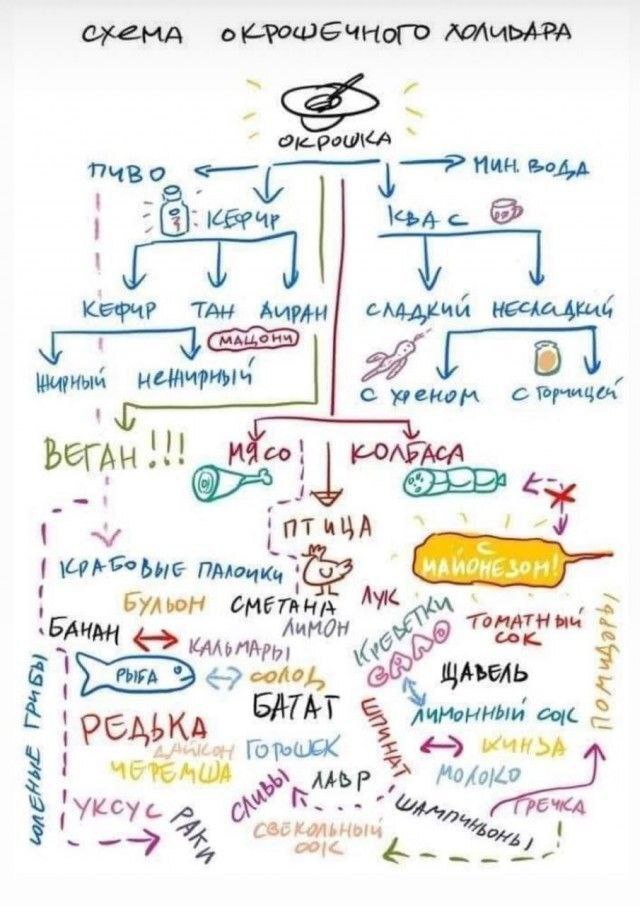 СХЕМА ОКРОШЕЧНОГО ХОЛИВАРА
ОКРОШКА
ПИВО
МИН. ВОДА
КЕФИР
КВАС
КЕФИР ТАН АИРАН
СЛАДКИЙ НЕСЛАДКИЙ
МАЦОНИ
ЖИРНЫЙ НЕЖИРНЫЙ
С ХРЕНОМ С ГОРЧИЦЕЙ
ВЕГАН!!!
МЯСО
КОЛБАСА
ПТИЦА
С МАЙОНЕЗОМ!
КРАБОВЫЕ ПАЛОЧКИ
БУЛЬОН СМЕТАНА ЛУК
КРЕВЕТКИ
ТОМАТНЫЙ СОК
БАНАН
КАЛЬМАРЫ
ЛИМОН
САЛО
ПОМИДОРЫ
РЫБА
СОЛОД
ЩАВЕЛЬ
СОЛЕНЫЕ ГРИБЫ
РЕДЬКА
БАТАТ
ШПИНАТ
ЛИМОННЫЙ СОК
ДАЙКОН
ГОРОШЕК
КИНЗА
ЧЕРЕМША
СЛИВЫ
ЛАВР
МОЛОКО
УКСУС
РАКИ
СВЕКОЛЬНЫЙ СОК
ШАМПИНЬОНЫ
ГРЕЧКА